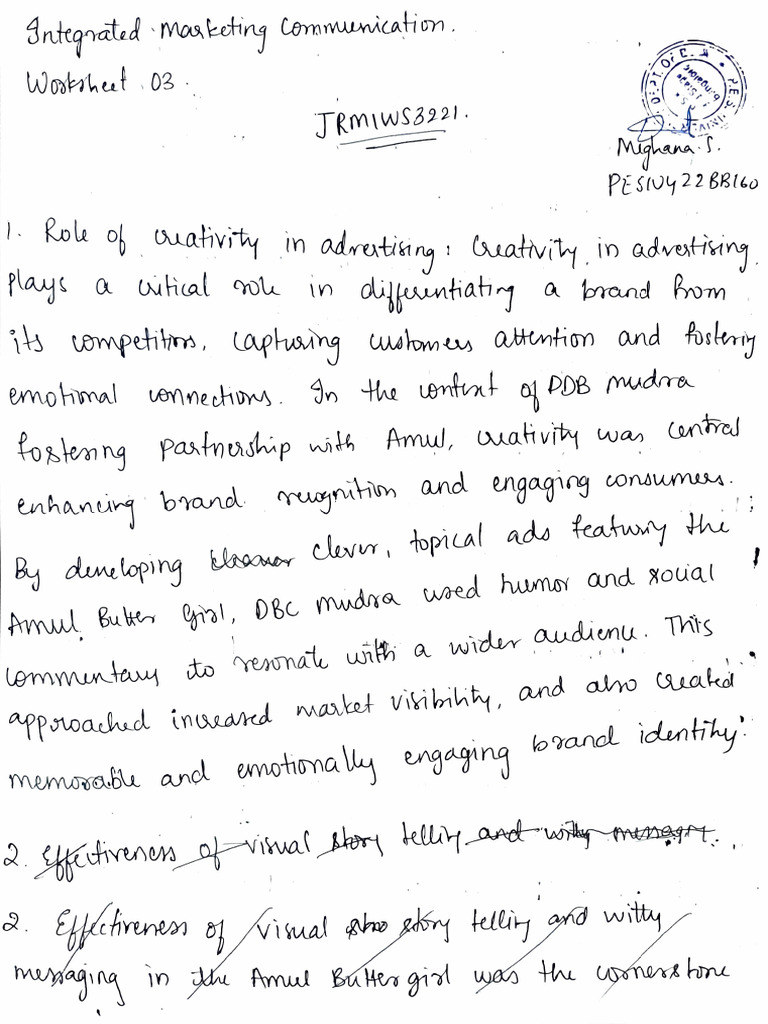 Integrated Marketing Communication.
Worksheet 03.
JRM1WS3221.
Meghana S.
PES1UG22BB160
1. Role of creativity in advertising: Creativity in advertising
plays a critical role in differentiating a brand from
its competitors, capturing customers attention and fostering
emotional connections. In the context of DDB mudra
fostering partnership with Amul, creativity was central
enhancing brand recognition and engaging consumers.
By developing clever, topical ads featuring the
Amul Butter Girl, DBC mudra used humor and social
commentary to resonate with a wider audience. This
approached increased market visibility, and also created
memorable and emotionally engaging brand identity.
2. Effectiveness of visual story telling and witty messagt.
2. Effectiveness of visual story telling and witty
messaging in the Amul Butter girl was the cornerstone